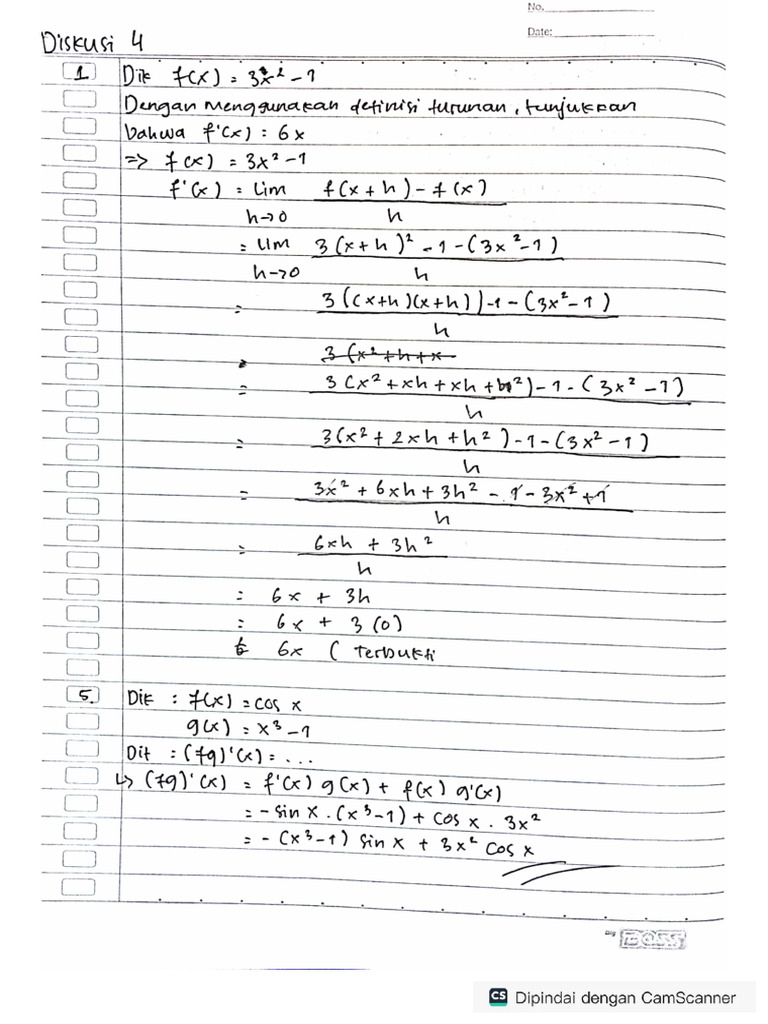 No.
Date:
Diskusi 4
1 Dik f(x) = 3x² - 1
Dengan menggunakan definisi turunan, tunjukkan
bahwa f'(x) = 6x
=> f(x) = 3x² - 1
f'(x) = lim f(x + h) - f(x)
h→0 h
= lim 3(x + h)² - 1 - (3x² - 1)
h→0 h
= 3((x+h)(x+h)) - 1 - (3x² - 1)
h
3(x² + h + x
= 3(x² + xh + xh + h²) - 1 - (3x² - 1)
h
= 3(x² + 2xh + h²) - 1 - (3x² - 1)
h
= 3x² + 6xh + 3h² - 1 - 3x² + 1
h
= 6xh + 3h²
h
= 6x + 3h
= 6x + 3(0)
6x ( Terbukti
5. Dik : f(x) = cos x
g(x) = x³ - 1
Dit : (fg)'(x) = ...
↳ (fg)'(x) = f'(x) g(x) + f(x) g'(x)
= -sin x . (x³ - 1) + cos x . 3x²
= -(x³ - 1) sin x + 3x² cos x
BOSS
CS Dipindai dengan CamScanner